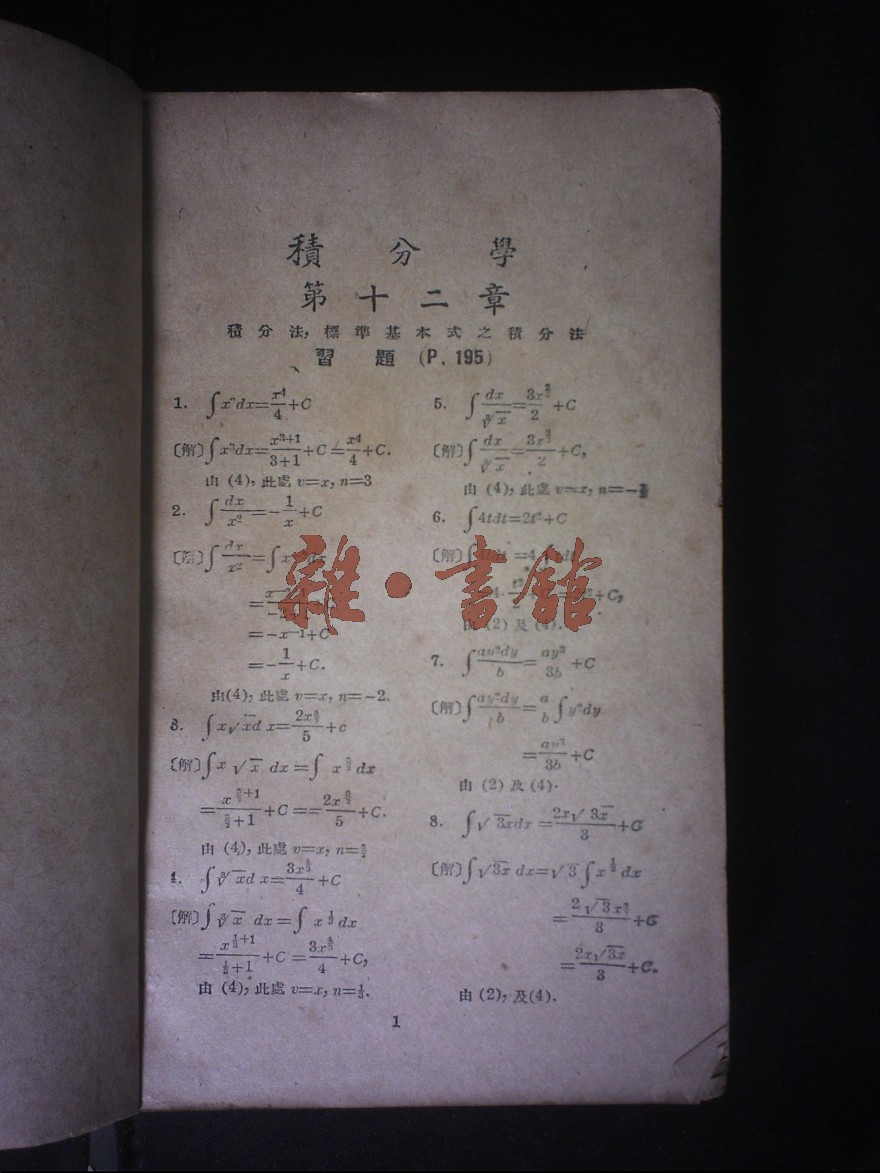 積分學
第十二章
積分法,標準基本式之積分法
習題 (P. 195)
1. ∫xⁿdx=x⁴/4+C
〔解〕∫x³dx=x³⁺¹/3+1+C=x⁴/4+C.
由 (4), 此處 v=x, n=3
2. ∫dx/x²=-1/x+C
∫dx/x²=∫x
=-x⁻¹+C
=-1/x+C.
由(4), 此處 v=x, n=-2.
3. ∫x√xd x=2x^(5/2)/5+c
〔解〕∫x √x dx=∫ x^(3/2) dx
+C==2x^(5/2)/5+C.
由 (4), 此處 v=x, n=
4. ∫∛xd x=3x^(4/3)/4+C
〔解〕∫∛x dx=∫ x^(1/3) dx
=x^(1/3+1)/(1/3+1)+C=3x^(4/3)/4+C,
由 (4), 此處 v=x, n=1/3.
5. ∫dx/∛x=3x^(2/3)/2+C
〔解〕∫dx/∛x=3x^(2/3)/2+C,
由 (4), 此處 v=x, n=-
6. ∫4tdt=2t²+C
〔解〕=4
+C,
由 (2) 及 (4).
7. ∫ay²dy/b=ay³/3b+C
〔解〕∫ay²dy/b=a/b∫y²dy
=ay³/3b+C
由 (2) 及 (4).
8. ∫√3xdx=2x√3x/3+C
〔解〕∫√3x dx=√3∫x^(1/2) dx
=2√3x^(3/2)/3+C
=2x√3x/3+C.
由 (2), 及(4).
1
雜·書館